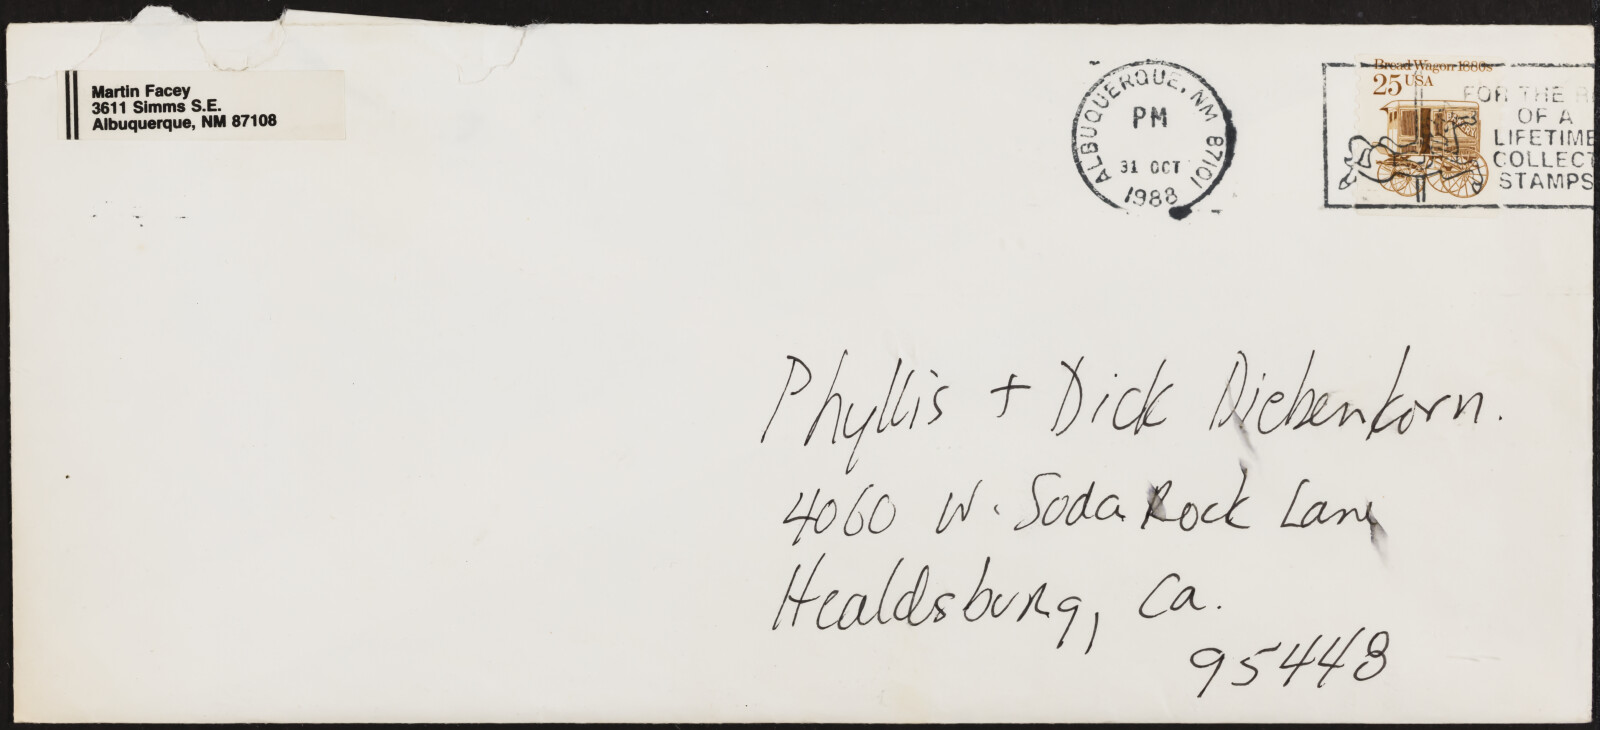 Martin Facey
3611 Simms S.E.
Albuquerque, NM 87108
ALBUQUERQUE, NM 87101
PM
31 OCT
1988
Bread Wagon 1880s
25 USA
FOR THE
OF A
LIFETIME
COLLECT
STAMPS
Phyllis + Dick Diebenkorn.
4060 W. Soda Rock Lane
Healdsburg, Ca.
95448